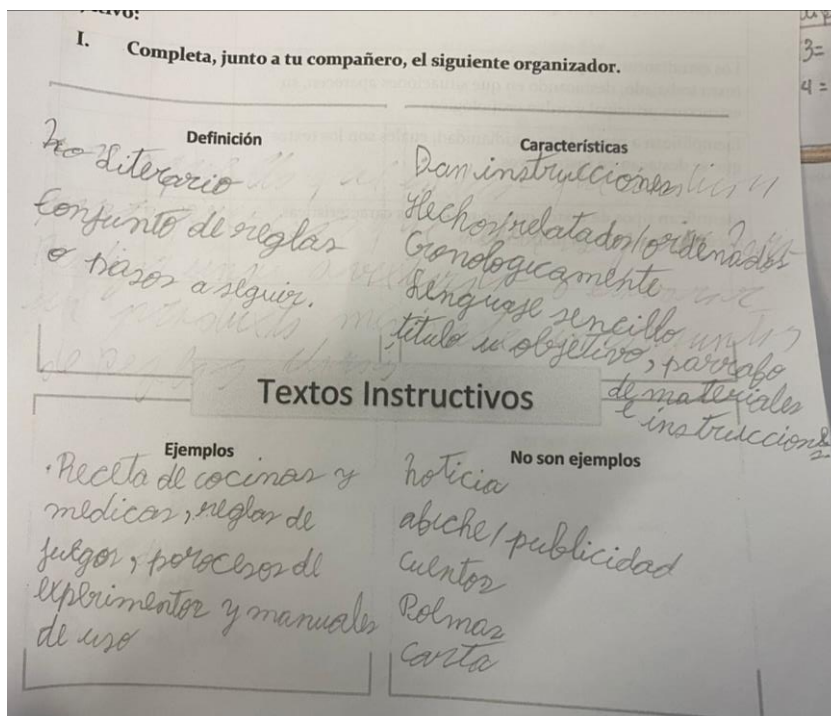 I. Completa, junto a tu compañero, el siguiente organizador.
Definición
No Literario
Conjunto de reglas
o pasos a seguir.
Características
Dan instrucciones
Hechos/relatados/ordenados
Cronologicamente
Lenguaje sencillo
título u objetivo, parrafo
de materiales
e instrucciones
Textos Instructivos
Ejemplos
• Receta de cocinas y
medicas, reglas de
juegos, porocesos de
experimentos y manuales
de uso
No son ejemplos
noticia
abiche/publicidad
cuentos
Polmas
Carta
3=
4=